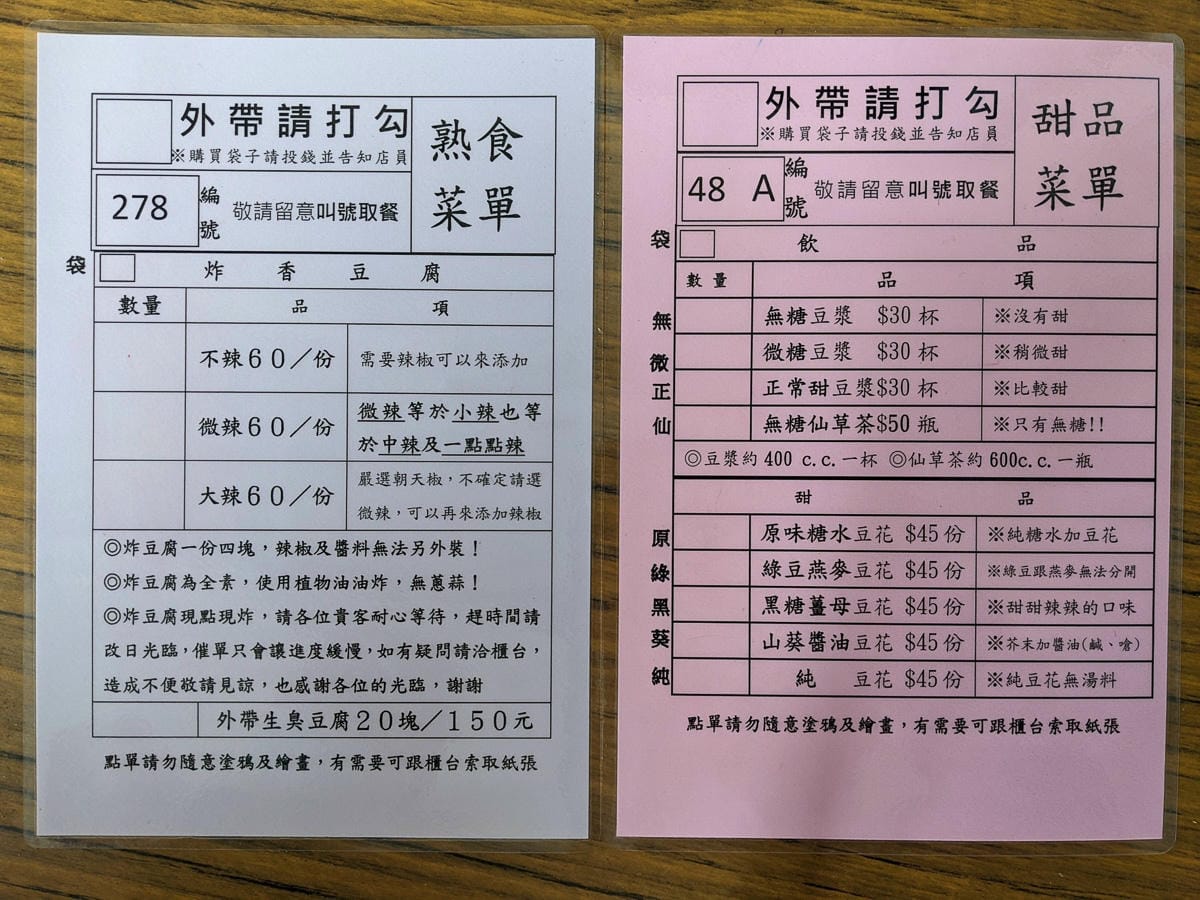 外帶請打勾
※購買袋子請投錢並告知店員
熟食
菜單
278
編號
敬請留意叫號取餐
袋
炸香豆腐
數量 品項
不辣60／份 需要辣椒可以來添加
微辣60／份 微辣等於小辣也等
於中辣及一點點辣
大辣60／份 嚴選朝天椒，不確定請選
微辣，可以再來添加辣椒
◎炸豆腐一份四塊，辣椒及醬料無法另外裝！
◎炸豆腐為全素，使用植物油油炸，無蔥蒜！
◎炸豆腐現點現炸，請各位貴客耐心等待，趕時間請
改日光臨，催單只會讓進度緩慢，如有疑問請洽櫃台，
造成不便敬請見諒，也感謝各位的光臨，謝謝
外帶生臭豆腐20塊／150元
點單請勿隨意塗鴉及繪畫，有需要可跟櫃台索取紙張
外帶請打勾
※購買袋子請投錢並告知店員
甜品
菜單
48 A
編號
敬請留意叫號取餐
袋
飲品
數量 品項
無 無糖豆漿 $30 杯 ※沒有甜
微 微糖豆漿 $30 杯 ※稍微甜
正 正常甜豆漿$30 杯 ※比較甜
仙 無糖仙草茶$50 瓶 ※只有無糖!!
◎豆漿約 400 c.c.一杯 ◎仙草茶約 600c.c.一瓶
甜品
原 原味糖水豆花 $45 份 ※純糖水加豆花
綠 綠豆燕麥豆花 $45 份 ※綠豆跟燕麥無法分開
黑 黑糖薑母豆花 $45 份 ※甜甜辣辣的口味
葵 山葵醬油豆花 $45 份 ※芥末加醬油(鹹、嗆)
純 純 豆花 $45 份 ※純豆花無湯料
點單請勿隨意塗鴉及繪畫，有需要可跟櫃台索取紙張